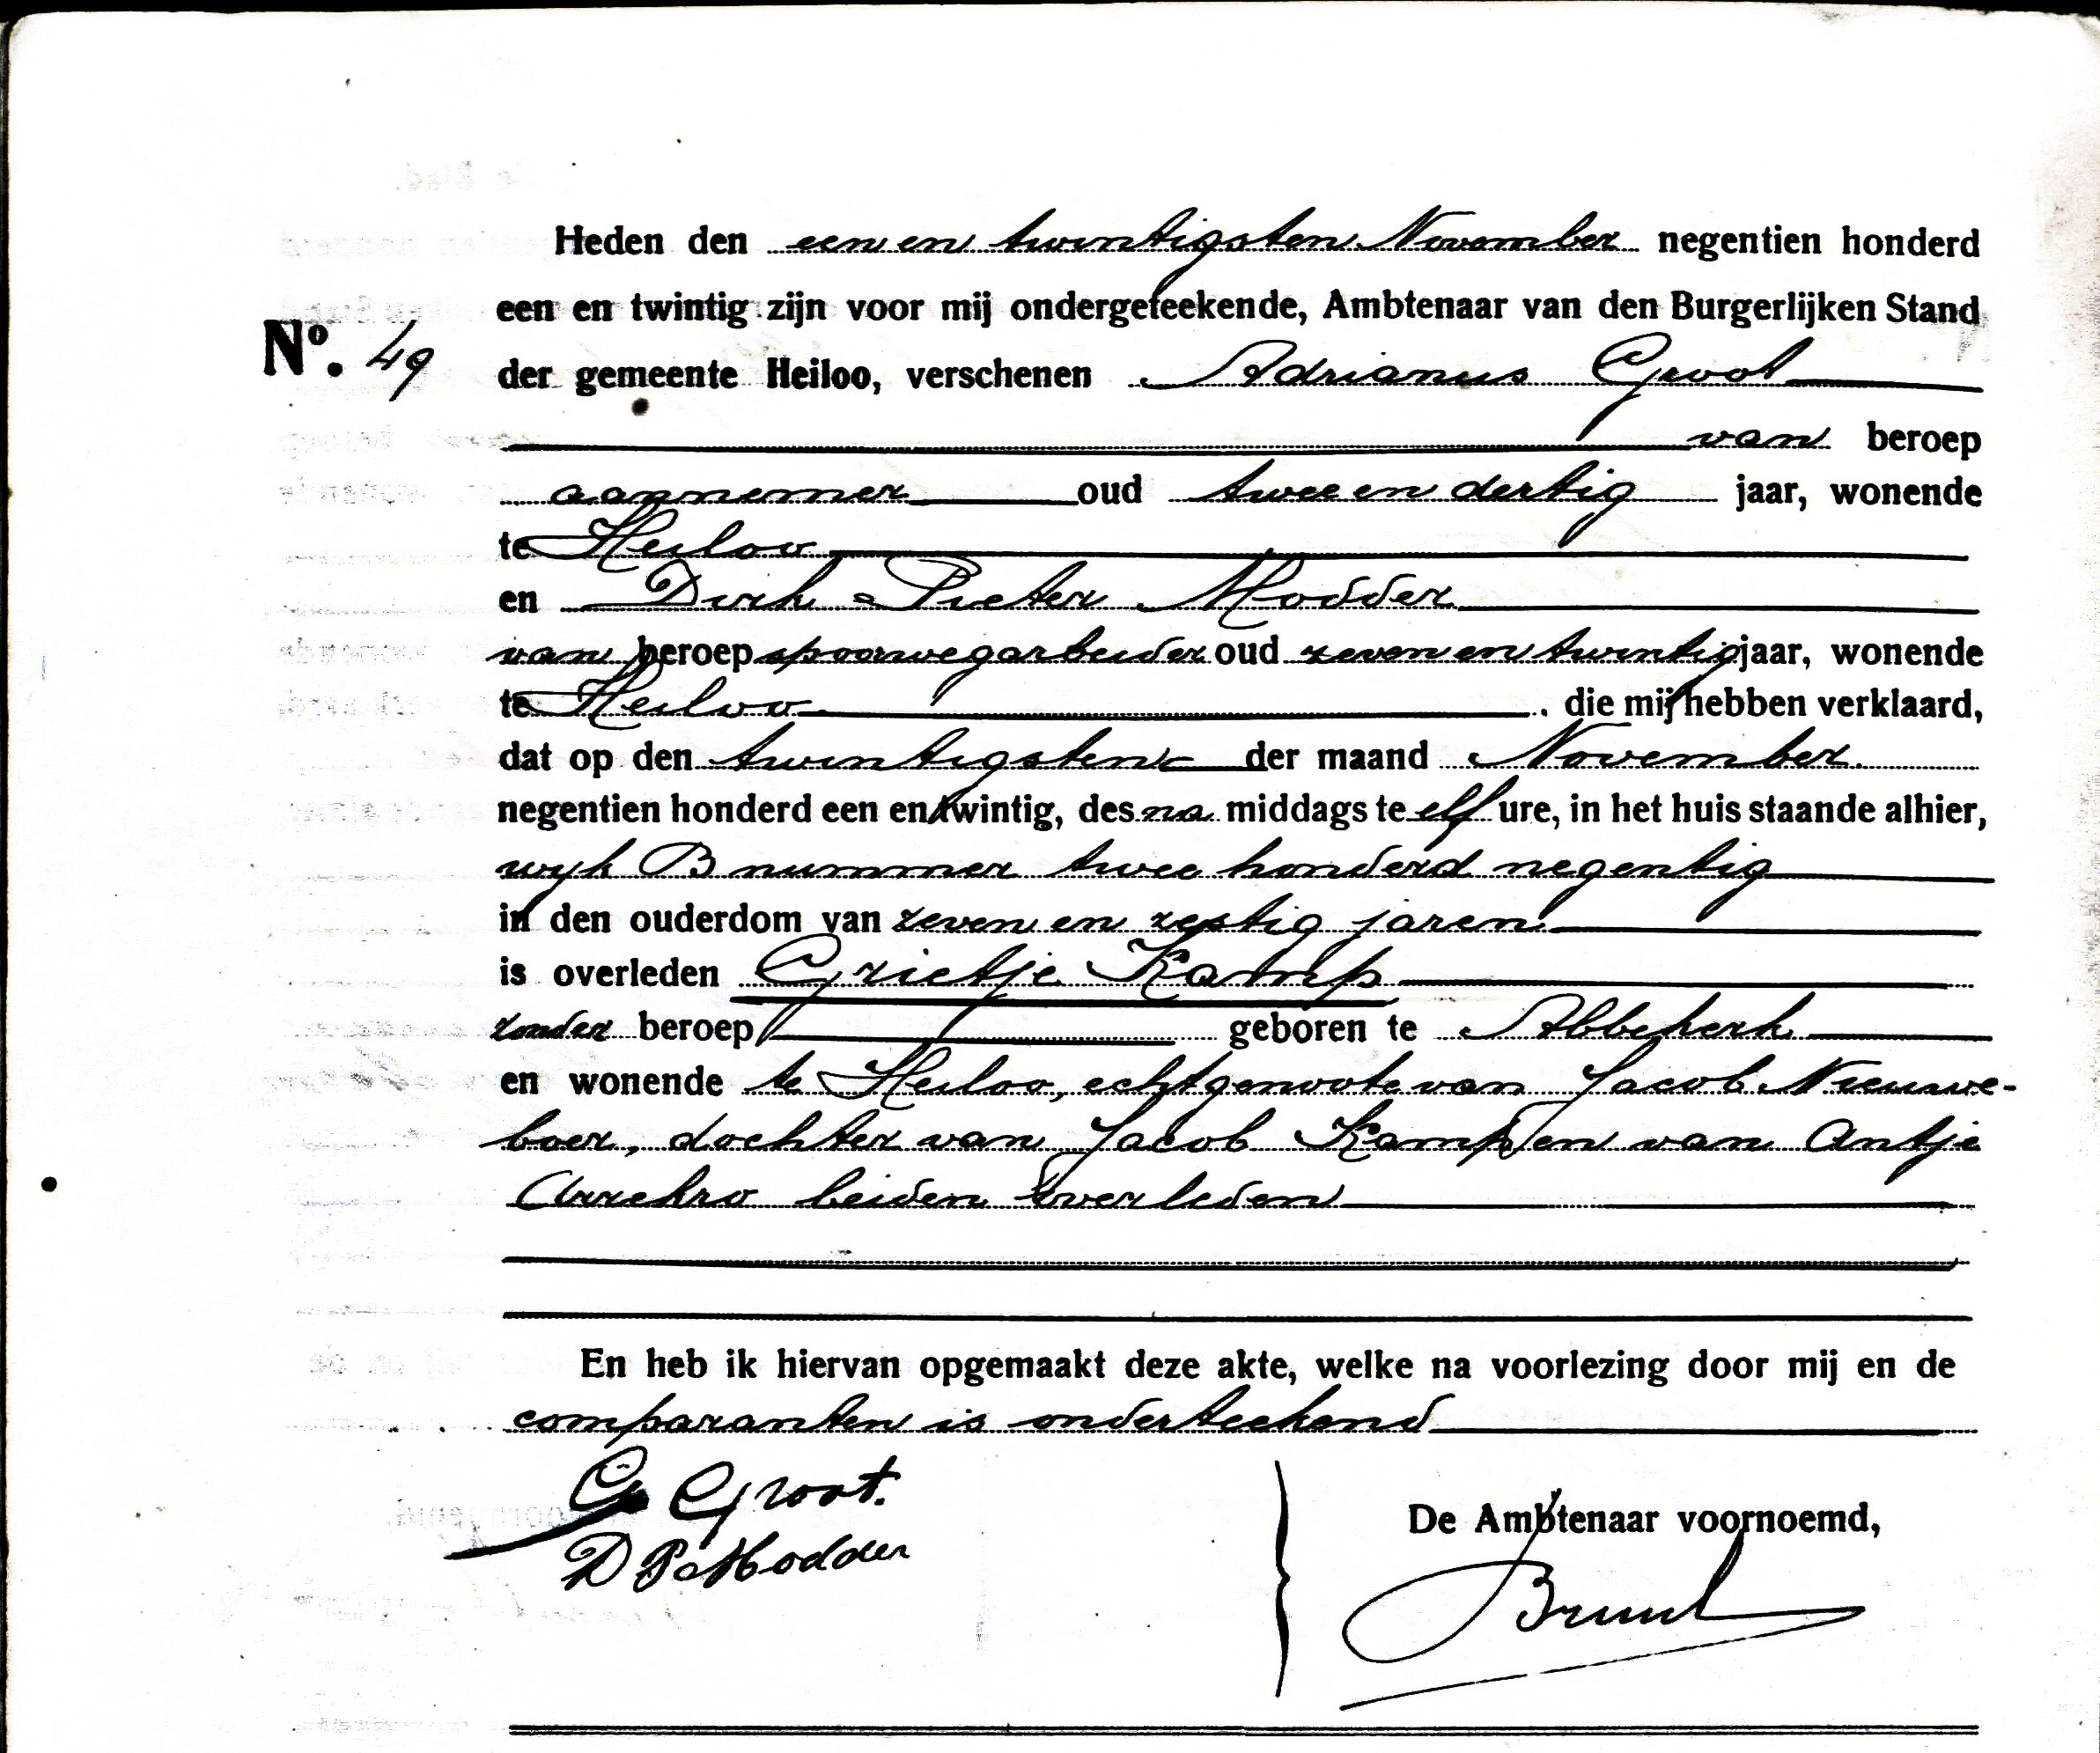 Heden den een en twintigsten November negentien honderd
een en twintig zijn voor mij ondergeteekende, Ambtenaar van den Burgerlijken Stand
No. 49
der gemeente Heiloo, verschenen Adrianus Groot
van beroep
aannemer oud twee en dertig jaar, wonende
te Heiloo
en Dirk Pieter Modder
van beroep spoorwegarbeider oud zeven en twintig jaar, wonende
te Heiloo die mij hebben verklaard,
dat op den twintigsten der maand November
negentien honderd een en twintig, des na middags te elf ure, in het huis staande alhier,
wyk B nummer twee honderd negentig
in den ouderdom van zeven en zestig jaren
is overleden Grietje Kamp
zonder beroep geboren te Abbekerk
en wonende te Heiloo, echtgenoote van Jacob Nieuwe-
boer, dochter van Jacob Kamp en van Antje
beiden overleden
En heb ik hiervan opgemaakt deze akte, welke na voorlezing door mij en de
comparanten is onderteekend
Groot.
D P Modder
De Ambtenaar voornoemd,